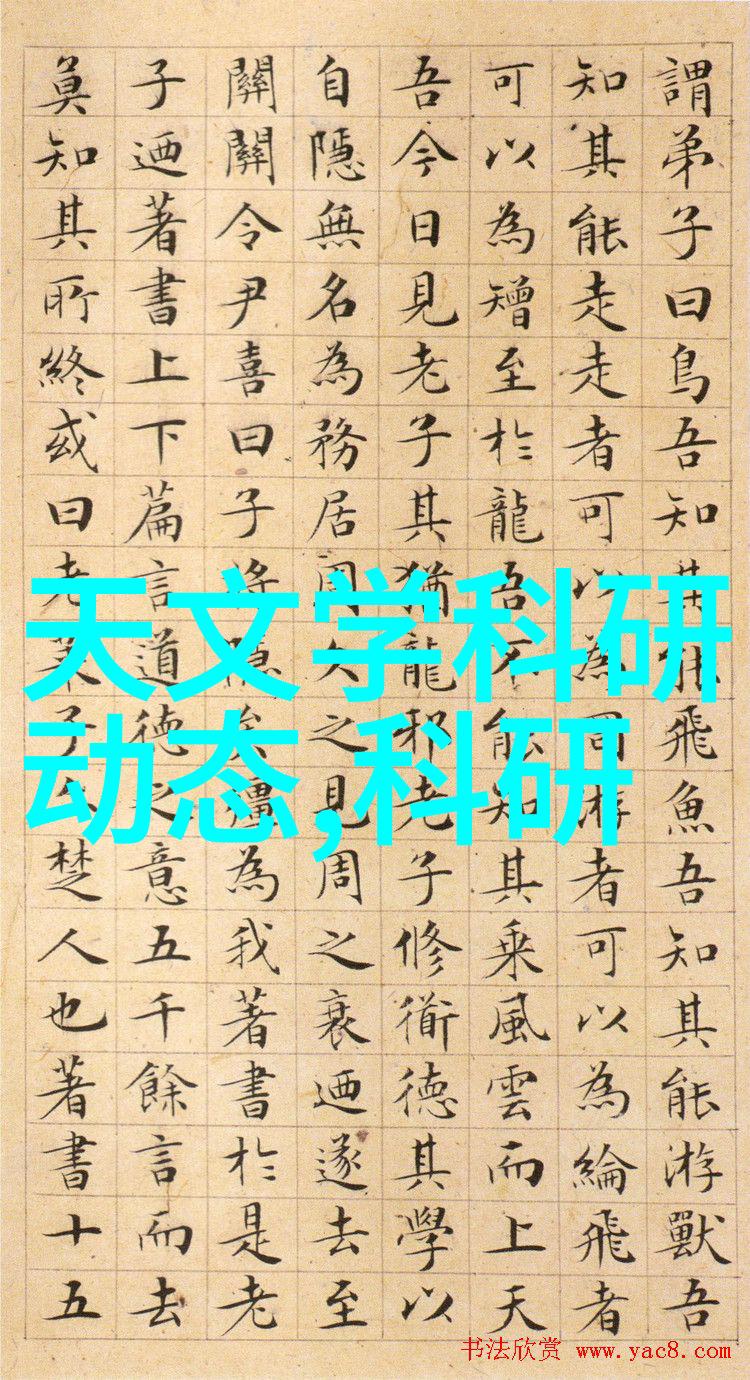 謂弟子曰鳥吾知其能飛魚吾知其能游獸吾
知其能走走者可以為罔游者可以為綸飛者
可以為矰至於龍吾不能知其乘風雲而上天
吾今日見老子其猶龍邪老子修衟德其學以
自隱無名為務居周久之見周之衰迺遂去至
關關令尹喜曰子將隱矣彊為我著書於是老
子迺著書上下篇言道德之意五千餘言而去
莫知其所終或曰老萊子亦楚人也著書十五
天文学科研
动态,科研
书法欣赏 www.yac8.com